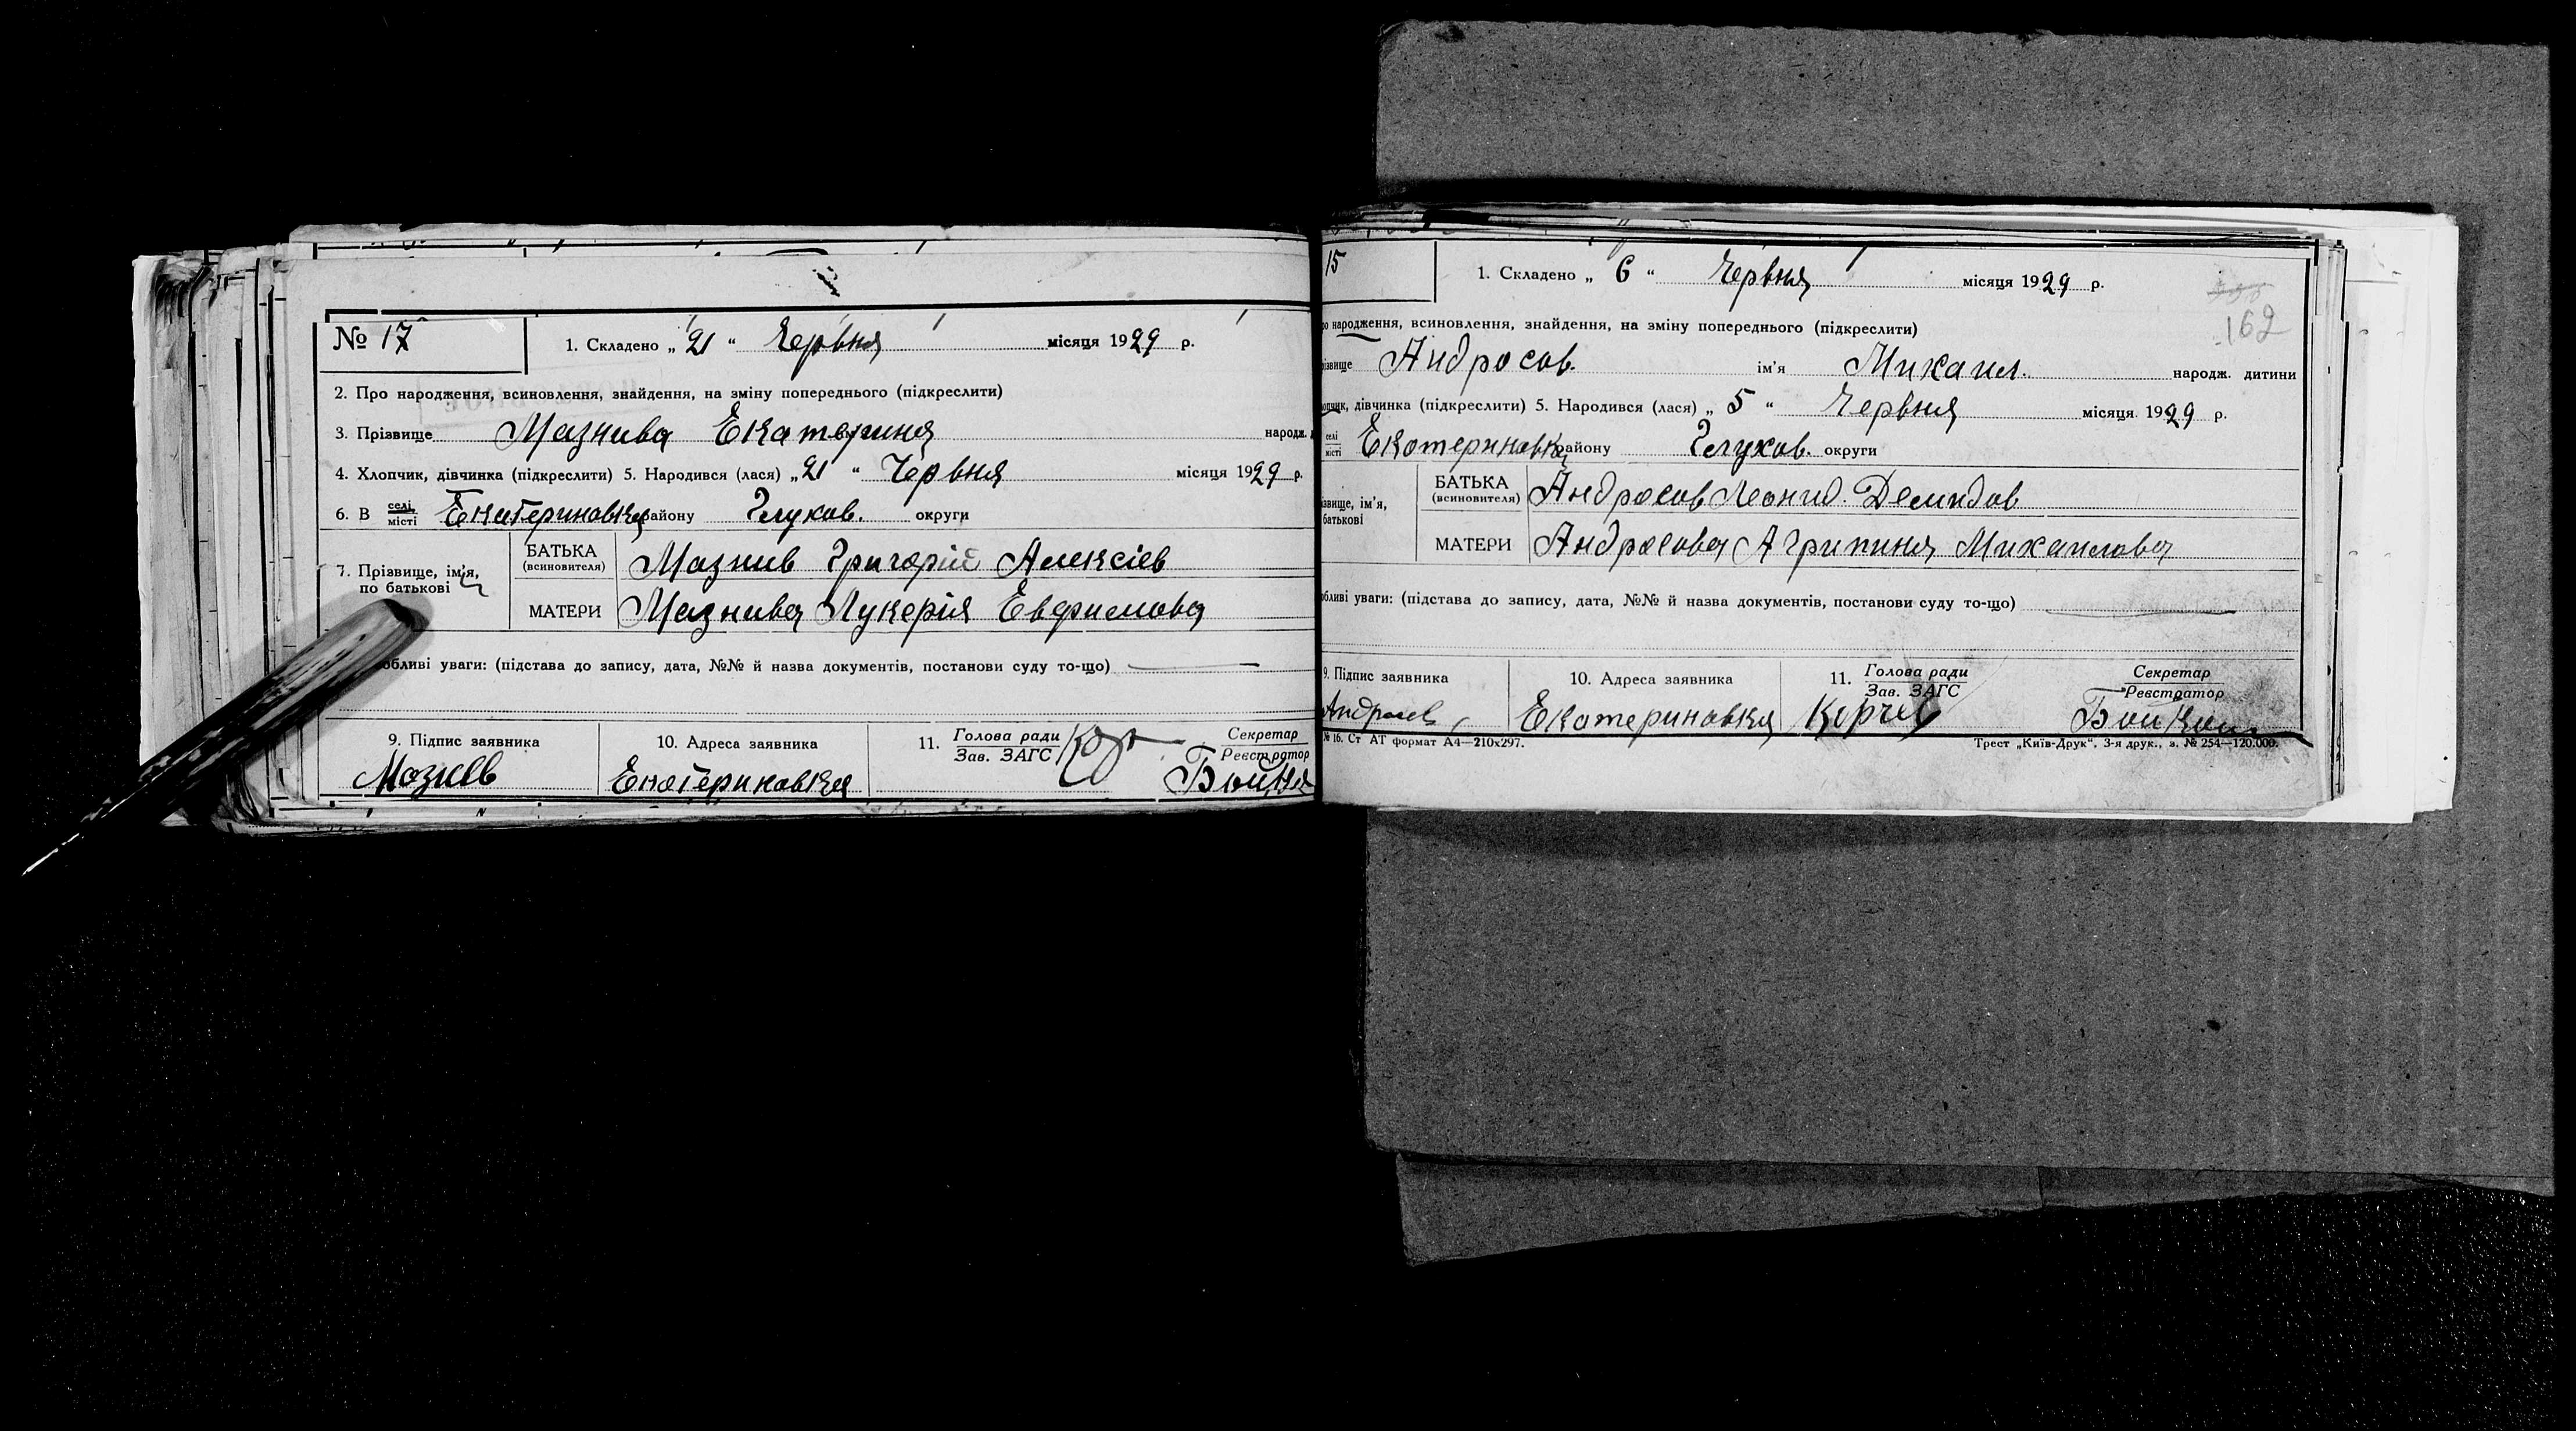 № 17
1. Складено „ 21 “ Червня місяця 1929 р.
2. Про народження, всиновлення, знайдення, на зміну попереднього (підкреслити)
3. Прізвище Мазнива Екатерина народж.
4. Хлопчик, дівчинка (підкреслити) 5. Народився (лася) „ 21 “ Червня місяця 1929 р.
6. В селі місті Екатериновка району Глухов. округи
7. Прізвище, ім’я, по батькові
БАТЬКА (всиновителя) Мазнив Григорій Алексіев
МАТЕРИ Мазнива Лукерія Евфимова
обливі уваги: (підстава до запису, дата, №№ й назва документів, постанови суду то-що)
9. Підпис заявника
10. Адреса заявника
11. Голова ради
Зав. ЗАГС
Секретар
Реєстратор
Мазнів Екатериновка
15
1. Складено „ 6 “ Червня місяця 1929 р.
162
народження, всиновлення, знайдення, на зміну попереднього (підкреслити)
ізвище Андросов. ім’я Михаил. народж. дитини
опчик, дівчинка (підкреслити) 5. Народився (лася) „ 5 “ Червня місяця 1929 р.
селі місті Екатериновка району Глухов. округи
ізвище, ім’я,
батькові
БАТЬКА (всиновителя) Андросов Леонид. Демидов
МАТЕРИ Андросова Агрипина Михаилова
обливі уваги: (підстава до запису, дата, №№ й назва документів, постанови суду то-що)
9. Підпис заявника
10. Адреса заявника
11. Голова ради
Зав. ЗАГС
Секретар
Реєстратор
Екатериновка
№ 16. Ст АТ формат А4—210х297.
Трест „Київ-Друк“. 3-я друк., з. № 254—120.000.